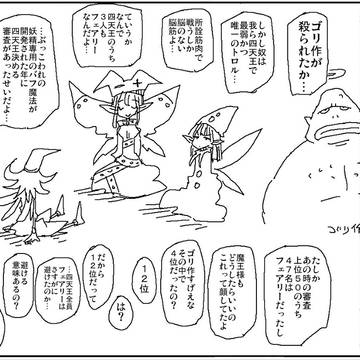 ゴリ作が
殺られたか…
しかし奴は
我ら四天王で
最弱かつ
唯一のトロル…
所詮筋肉で
戦うしか
脳のない
脳筋よ
ていうか
なんで
四天王のうち
3人も
フェアリー
なんだ…
…ぶっこわれの
妖精専用のバフ魔法が
開発された年に
四天王決める
審査があった
せいだよ…
ゴリ作
たしか
あの時の審査
上位50のうち
47名は
フェアリーだったし
魔王様も
どうしたらいいの
これって顔してたよ
ゴリ作すげえな
その中で
4位だったの?
12位
は?
だから
12位だって
…四天王全員
フェアリーは
さすがに
避けたのか…
避ける
意味あるの?